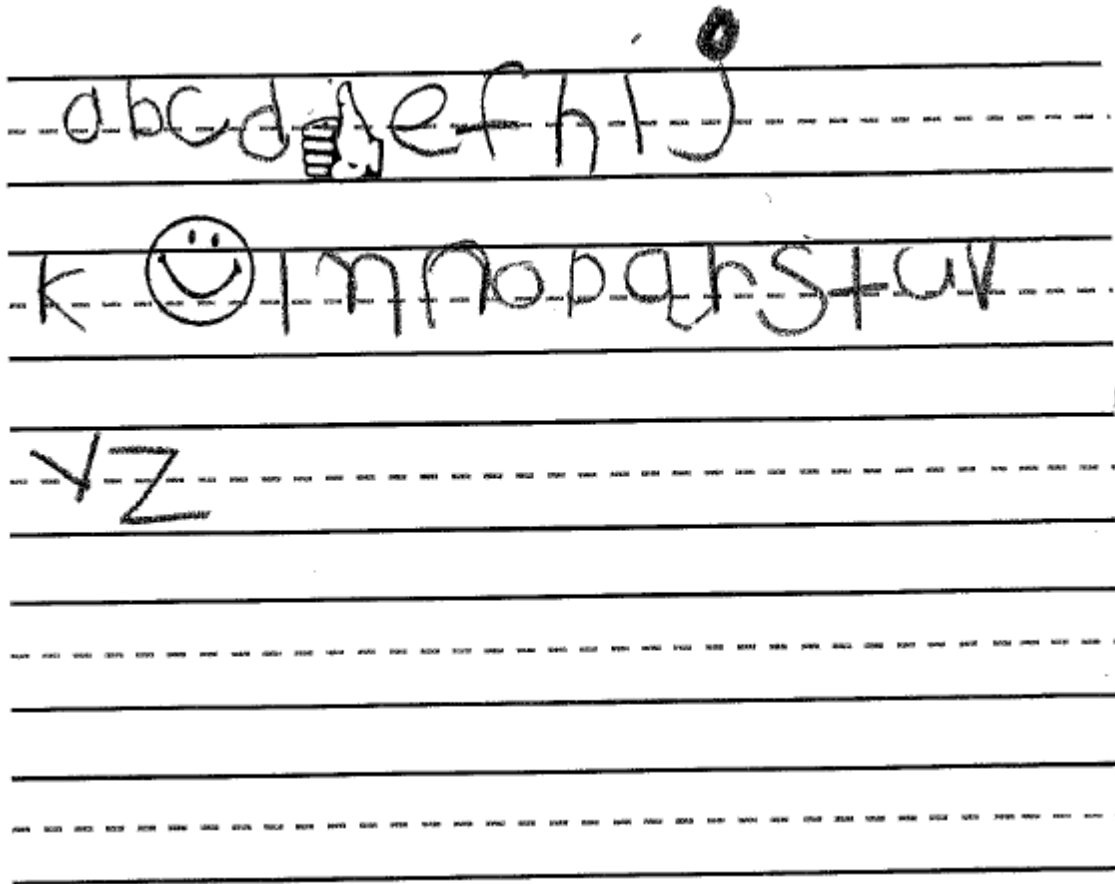 a b c d 👍 e f h i j
k ☺ l m n o p q r s t u v
y z